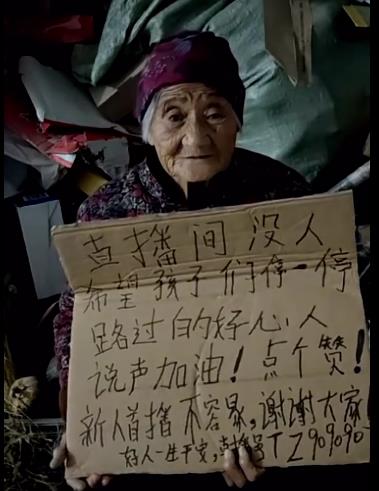 直播间没人
希望孩子们停一停
路过的好心人
说声加油！点个赞！
新人首播不容易，谢谢大家
好人一生平安，直播号TZ909090